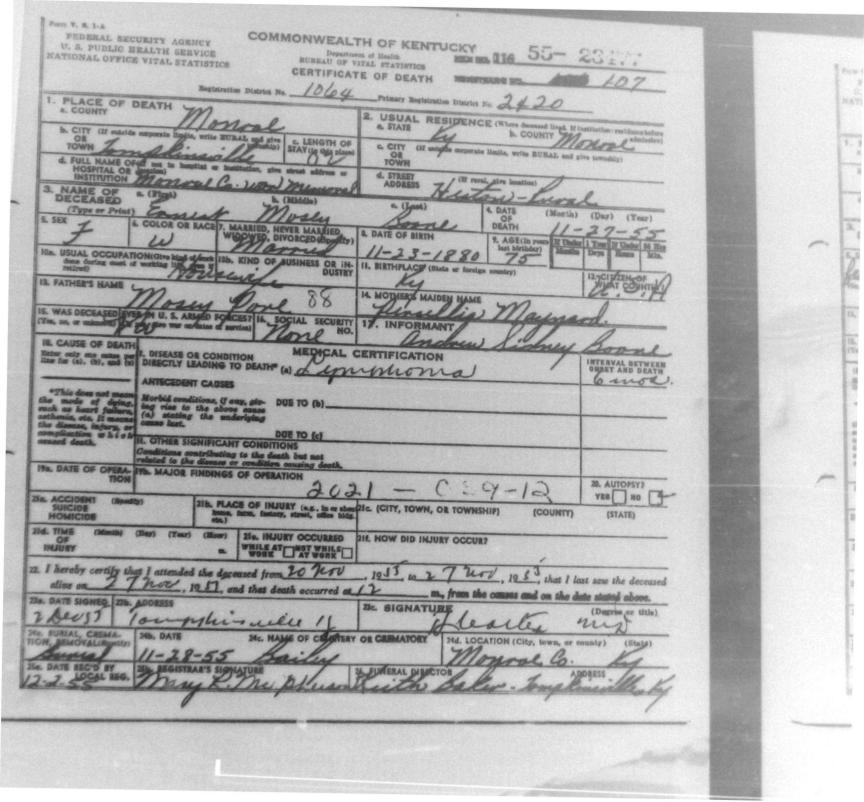 Form V. S. 1-A
FEDERAL SECURITY AGENCY
U. S. PUBLIC HEALTH SERVICE
NATIONAL OFFICE VITAL STATISTICS
COMMONWEALTH OF KENTUCKY
Department of Health
BUREAU OF VITAL STATISTICS
CERTIFICATE OF DEATH
116 55-
107
Registration District No. 1064 Primary Registration District No. 2420
1. PLACE OF DEATH
a. COUNTY Monroe
2. USUAL RESIDENCE (Where deceased lived. If institution: residence before admission)
a. STATE Ky b. COUNTY Monroe
b. CITY (If outside corporate limits, write RURAL and give township)
OR
TOWN Tompkinsville
c. LENGTH OF STAY (in this place)
c. CITY (If outside corporate limits, write RURAL and give township)
OR
TOWN
d. FULL NAME OF (If not in hospital or institution, give street address or location)
HOSPITAL OR
INSTITUTION Monroe Co. War Memorial
d. STREET (If rural, give location)
ADDRESS Hestow - Rural
3. NAME OF DECEASED
(Type or Print)
a. (First) Ernest b. (Middle) Mosey c. (Last) Boone
4. DATE OF DEATH (Month) (Day) (Year)
11-27-55
5. SEX F
6. COLOR OR RACE W
7. MARRIED, NEVER MARRIED, WIDOWED, DIVORCED (Specify) Married
8. DATE OF BIRTH 11-23-1880
9. AGE (In years last birthday) 75
If Under 1 Year Months Days
If Under 24 Hrs Hours Min.
10a. USUAL OCCUPATION (Give kind of work done during most of working life, even if retired) Housewife
10b. KIND OF BUSINESS OR INDUSTRY
11. BIRTHPLACE (State or foreign country) Ky
12. CITIZEN OF WHAT COUNTRY? U.S.A
13. FATHER'S NAME Mosey 88
14. MOTHER'S MAIDEN NAME Maynard.
15. WAS DECEASED EVER IN U. S. ARMED FORCES?
(Yes, no, or unknown) (If yes, give war or dates of service)
16. SOCIAL SECURITY NO. None
17. INFORMANT Andrew Sidney Boone
18. CAUSE OF DEATH
Enter only one cause per line for (a), (b), and (c)
MEDICAL CERTIFICATION
I. DISEASE OR CONDITION
DIRECTLY LEADING TO DEATH* (a) Lymphoma
INTERVAL BETWEEN ONSET AND DEATH
6 mos.
*This does not mean the mode of dying, such as heart failure, asthenia, etc. It means the disease, injury, or complication which caused death.
ANTECEDENT CAUSES
Morbid conditions, if any, giving rise to the above cause (a) stating the underlying cause last.
DUE TO (b)
DUE TO (c)
II. OTHER SIGNIFICANT CONDITIONS
Conditions contributing to the death but not related to the disease or condition causing death.
19a. DATE OF OPERATION
19b. MAJOR FINDINGS OF OPERATION
2021 -
20. AUTOPSY?
YES NO
21a. ACCIDENT (Specify)
SUICIDE
HOMICIDE
21b. PLACE OF INJURY (e.g., in or about home, farm, factory, street, office bldg. etc.)
21c. (CITY, TOWN, OR TOWNSHIP) (COUNTY) (STATE)
21d. TIME OF INJURY (Month) (Day) (Year) (Hour) m.
21e. INJURY OCCURRED
WHILE AT WORK NOT WHILE AT WORK
21f. HOW DID INJURY OCCUR?
22. I hereby certify that I attended the deceased from 20 Nov, 1955, to 27 Nov, 1955, that I last saw the deceased
alive on 27 Nov, 195, and that death occurred at 12 m., from the causes and on the date stated above.
23a. DATE SIGNED
2 Dec
23b. ADDRESS
Tompkinsville Ky
23c. SIGNATURE (Degree or title)
MD
24a. BURIAL, CREMATION, REMOVAL (Specify)
Burial
24b. DATE
11-28-55
24c. NAME OF CEMETERY OR CREMATORY
Bailey
24d. LOCATION (City, town, or county) (State)
Monroe Co. Ky
25a. DATE REC'D BY LOCAL REG.
12-2-55
25b. REGISTRAR'S SIGNATURE
Mary L. McPherson
26. FUNERAL DIRECTOR ADDRESS
Keith Baker - Tompkinsville Ky